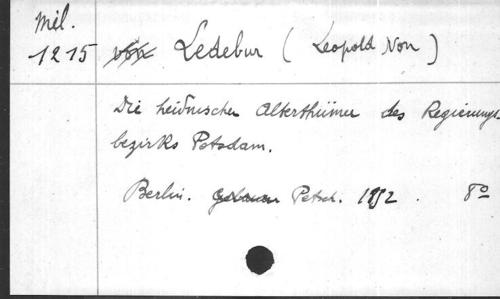 Mél.
1215 von Ledebur (Leopold Von)
Die heidnischen Alterthümer des Regierungs
bezirks Potsdam.
Berlin. Petsch. 1852. 8º